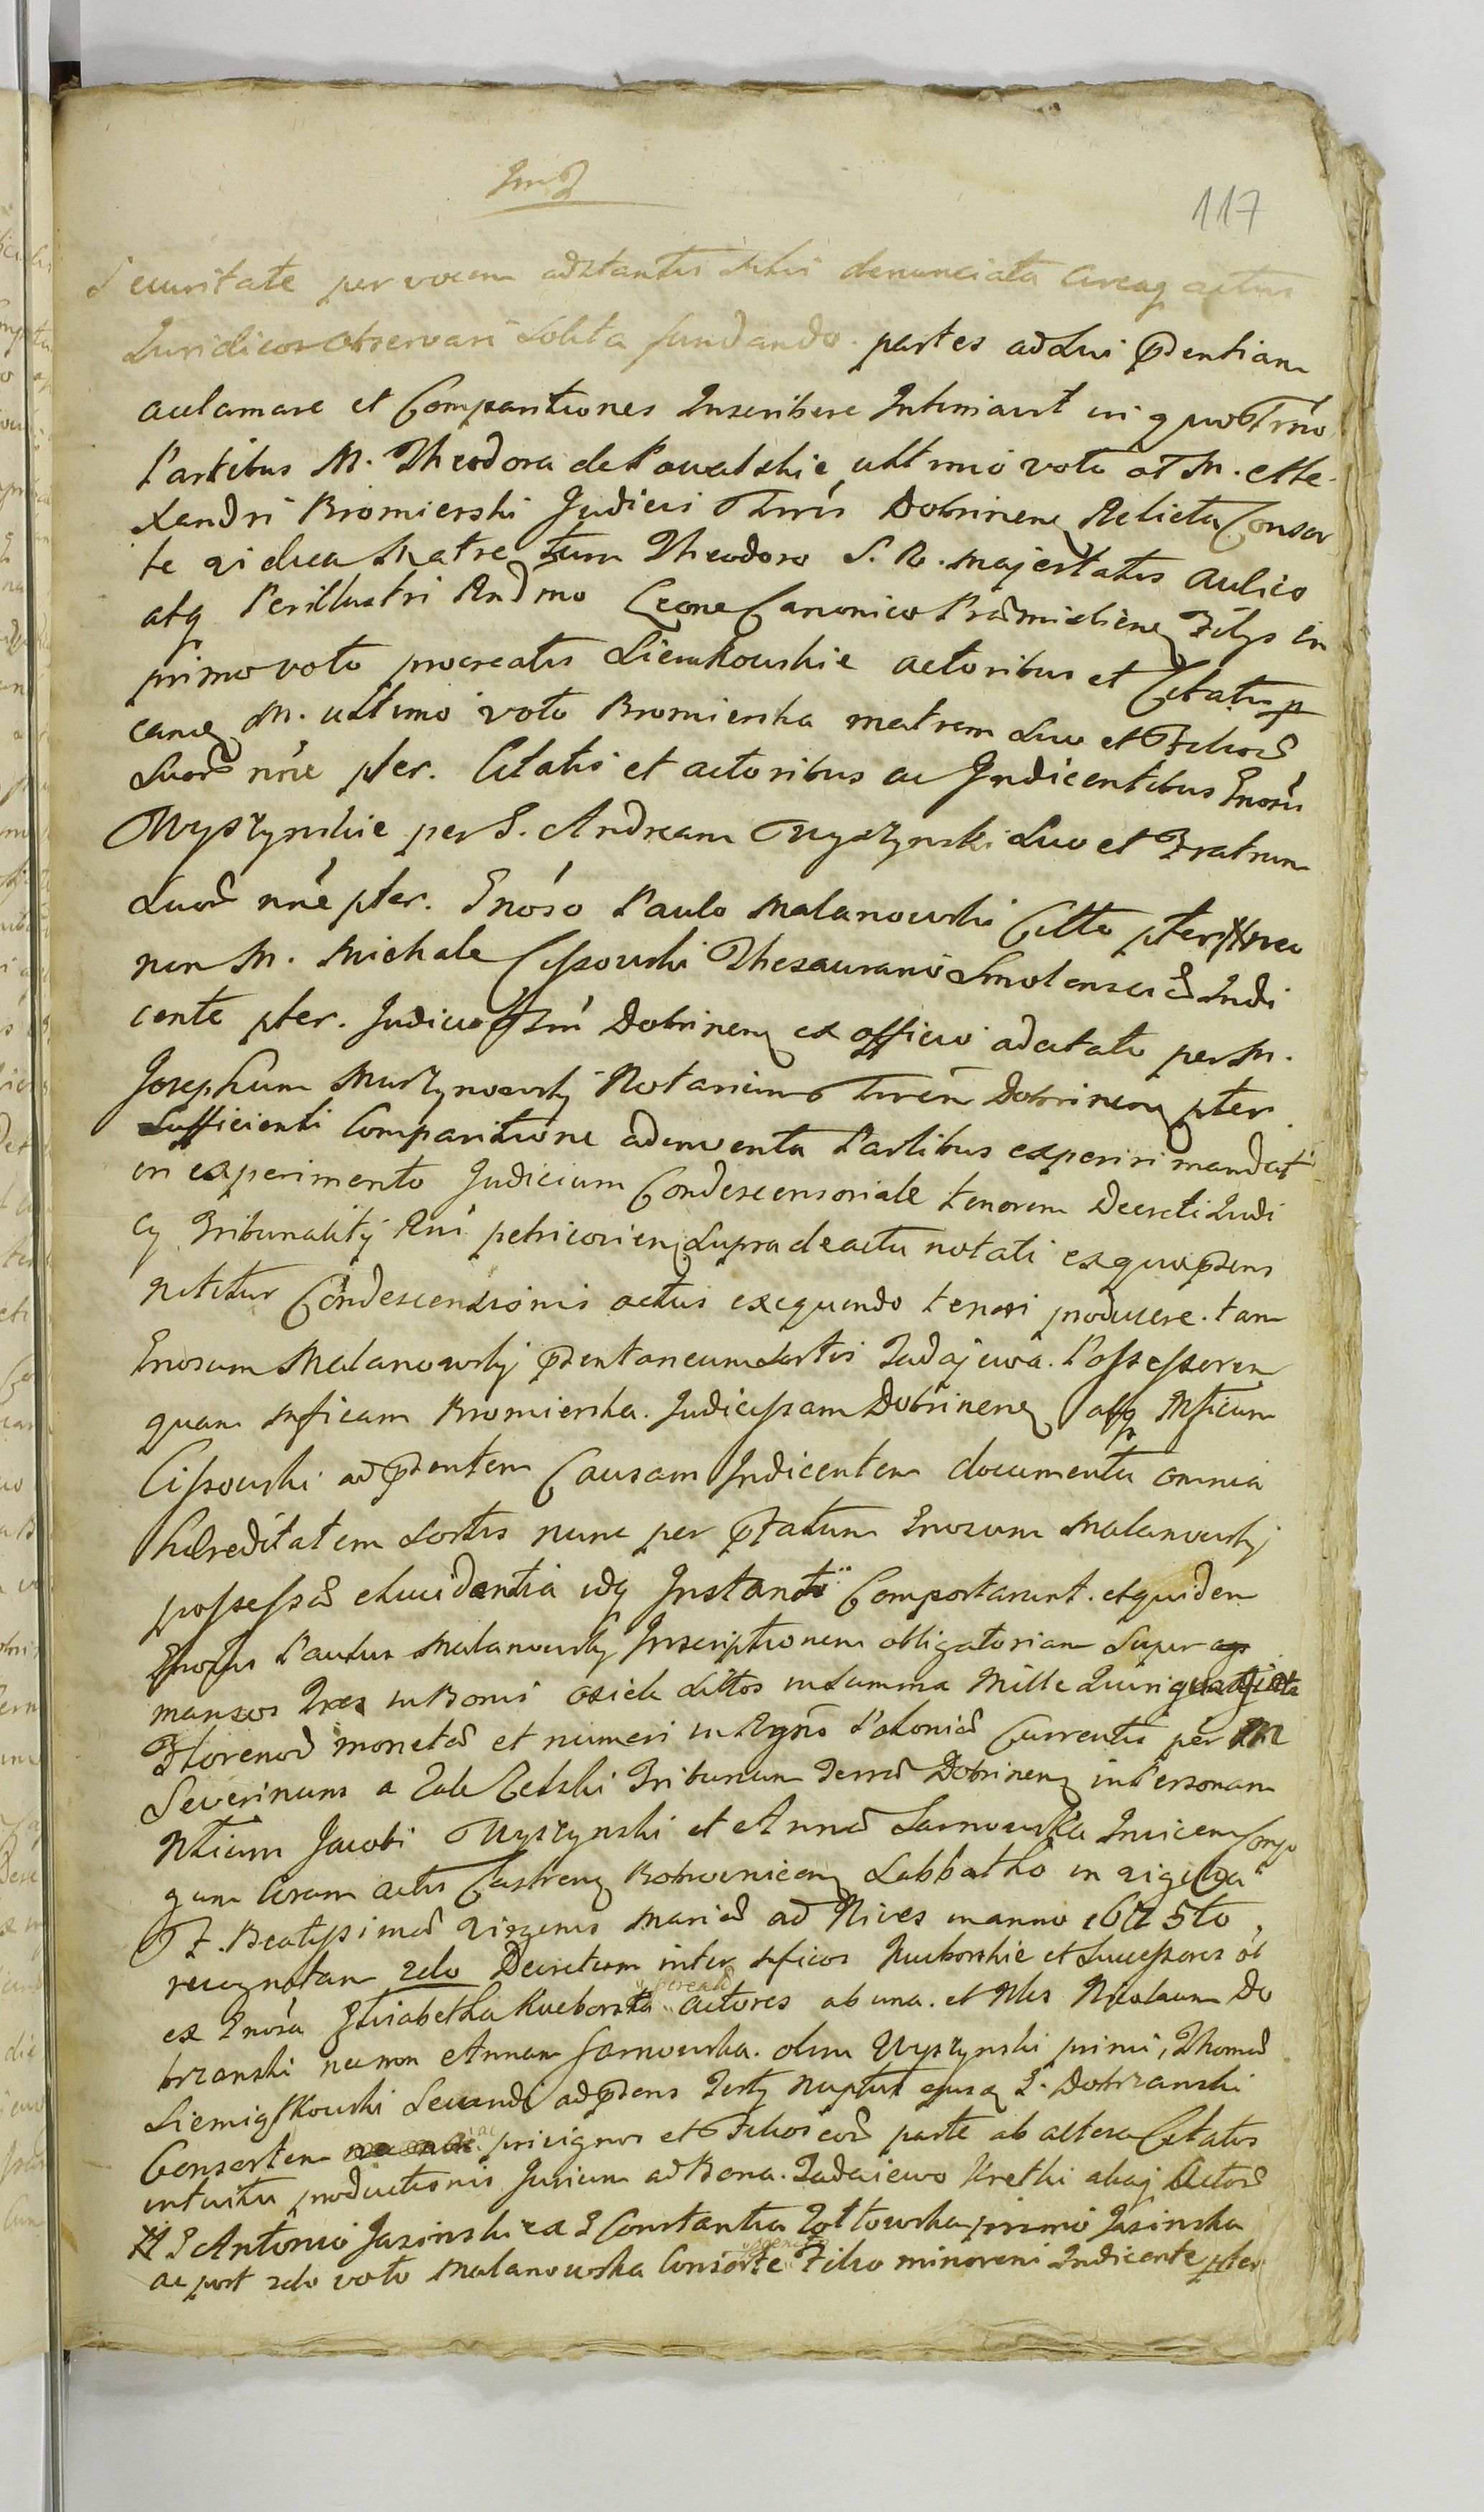 117
Securitate per vocem adstantis denunciata circaq actus
Juridicos observari solita fundando. partes ad sui pdentiam
aclamare et Comparitiones Inscribere Intimavit in quo Trno
Partibus M. Theodora de Kowalskie ultimo voto ol M. Ale
xandri Bromierski Judicis Trris Dobrinen Relicta Consor
te vidua Matre tum Theodoro S. R. Majestatis Aulico
atq Perillustri Rndmo Leone Canonico Filys in
primo voto procreatis Siemkowskie actoribus et Citatis p
eanq M. ultimo voto Bromierska matrem suo et Filior
Suor nne pter. Citatis et actoribus ac Indicentibus Gnosis
Wyszynskie per G. Andream Wyszynski suo et Fratrum
Suor nne pter. Gnoso Paulo Malanowski Citto pter nec
non M. Michale Cissowski Thesaurario Smolenscia Indi
cente pter. Judicio Trri Dobrinen ex officio adcitato per M.
Josephum Murzynowsky Notarium Trrem Dobrinen pter
Sufficienti Comparitione adinventa Partibus experiri mandat
in experimento Judicium Condescensoriale tenorem Decreti Judi
cy Tribunality Rni petricovien Supra de actu notati ex quo pdens
nititur Condescensionis actus exequendo tenori producere. tam
Gnosum Malanowsky pdentaneum Sortis Zadajewa. Possessorem
quam Mficam Bromierska. Judicissam Dobrinen atq Mficum
Cissowski ad pdentem Causam Indicentem documenta omnia
haereditatem Sortis nunc per pfatum Gnosum Malanowsky
possessae elucidentia idq Instanti Comportarunt. et quidem
Gnosus Paulus Malanowsky Inscriptionem obligatoriam Super
mansos Tres in Bonis osiek Sittos in Summa Mille Quingenta
Florenor monetae et numeri in Rgno Poloniae Currentis per M
Severinum a Zale Zelski Tribunum Terrae Dobrinen in Personam
Nlium Jacobi Wyszynski et Annae Sarnowska Invicem Conju
gum Coram actis Castren Bobrownicen Sabbatho in vigilia
F. Beatissimae Virginis Mariae ad Nives in anno 1675to
recognitam 2do Decretum inter Mficos Kuborskie et Successores ol
ex Gnosa Elisabetha Kuborska actores ab una. et Nles Nicolaum Do
brzanski necnon Annam Sarnowska. olim Wyszynski primi, Thomae
Siemiątkowski Secundi ad pdens Terty Nuptus ejusq G. Dobrzanski
Consortem ac privignos et Filios eor parte ab altera Citatos
intuitu productionis Jurium ad Bona. Zadaiewo Kretki aliaq Actor
G Antonio Jasinski ex G Constantia Zołtowska primo Jasinska
ac post 2do voto Malanowska Consorte Filio minoreni Indicente pter